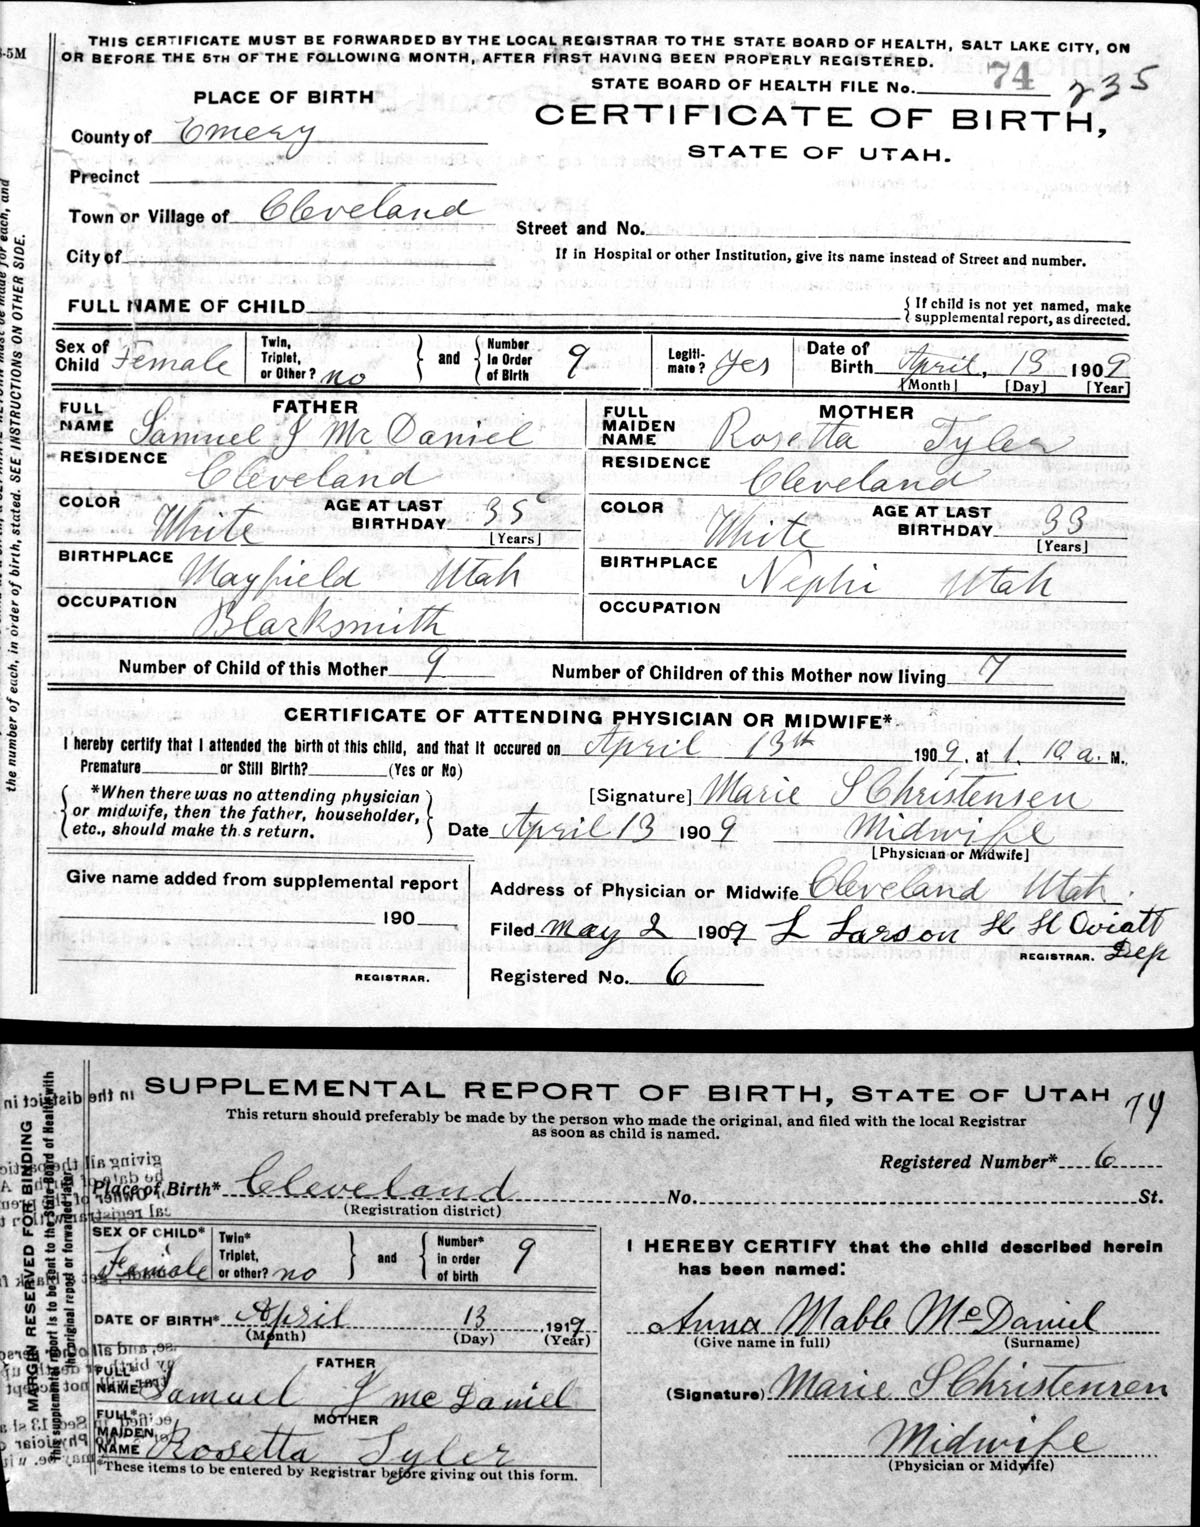 -5M
THIS CERTIFICATE MUST BE FORWARDED BY THE LOCAL REGISTRAR TO THE STATE BOARD OF HEALTH, SALT LAKE CITY, ON
OR BEFORE THE 5TH OF THE FOLLOWING MONTH, AFTER FIRST HAVING BEEN PROPERLY REGISTERED.
STATE BOARD OF HEALTH FILE No. 74 235
PLACE OF BIRTH
CERTIFICATE OF BIRTH,
STATE OF UTAH.
County of Emery
Precinct
Town or Village of Cleveland
Street and No.
City of
If in Hospital or other Institution, give its name instead of Street and number.
FULL NAME OF CHILD
{ If child is not yet named, make supplemental report, as directed.
Sex of Child Female
Twin, Triplet, or Other? no } and { Number In Order of Birth 9
Legiti-mate? Yes
Date of Birth April, 13 1909
[Month] [Day] [Year]
FATHER
FULL NAME Samuel J McDaniel
RESIDENCE Cleveland
COLOR White AGE AT LAST BIRTHDAY 35
[Years]
BIRTHPLACE Mayfield Utah
OCCUPATION Blacksmith
MOTHER
FULL MAIDEN NAME Rosetta Tyler
RESIDENCE Cleveland
COLOR White AGE AT LAST BIRTHDAY 33
[Years]
BIRTHPLACE Nephi Utah
OCCUPATION
Number of Child of this Mother 9 Number of Children of this Mother now living 7
CERTIFICATE OF ATTENDING PHYSICIAN OR MIDWIFE*
I hereby certify that I attended the birth of this child, and that it occured on April 13th 1909, at 1. 10 a. M.
Premature or Still Birth? (Yes or No)
*When there was no attending physician
or midwife, then the father, householder,
etc., should make th s return.
[Signature] Marie S Christensen
Date April 13 1909 Midwife
[Physician or Midwife]
Give name added from supplemental report
190
REGISTRAR.
Address of Physician or Midwife Cleveland Utah.
Filed May 2 1909 L Larson H H Oviatt
REGISTRAR. Dep
Registered No. 6
the number of each, in order of birth, stated. SEE INSTRUCTIONS ON OTHER SIDE.
SUPPLEMENTAL REPORT OF BIRTH, STATE OF UTAH 74
This return should preferably be made by the person who made the original, and filed with the local Registrar
as soon as child is named.
Registered Number* 6
Place of Birth* Cleveland No. St.
(Registration district)
SEX OF CHILD* Female
Twin* Triplet, or other? no } and { Number* in order of birth 9
DATE OF BIRTH* April 13 1919
(Month) (Day) (Year)
FATHER
FULL NAME Samuel J McDaniel
MOTHER
FULL* MAIDEN NAME Rosetta Tyler
*These items to be entered by Registrar before giving out this form.
I HEREBY CERTIFY that the child described herein
has been named:
Anna Mable McDaniel
(Give name in full) (Surname)
(Signature) Marie S Christensen
Midwife
(Physician or Midwife)
MARGIN RESERVED FOR BINDING
This supplemental report is to be sent to the State Board of Health with
the original report or forwarded later.